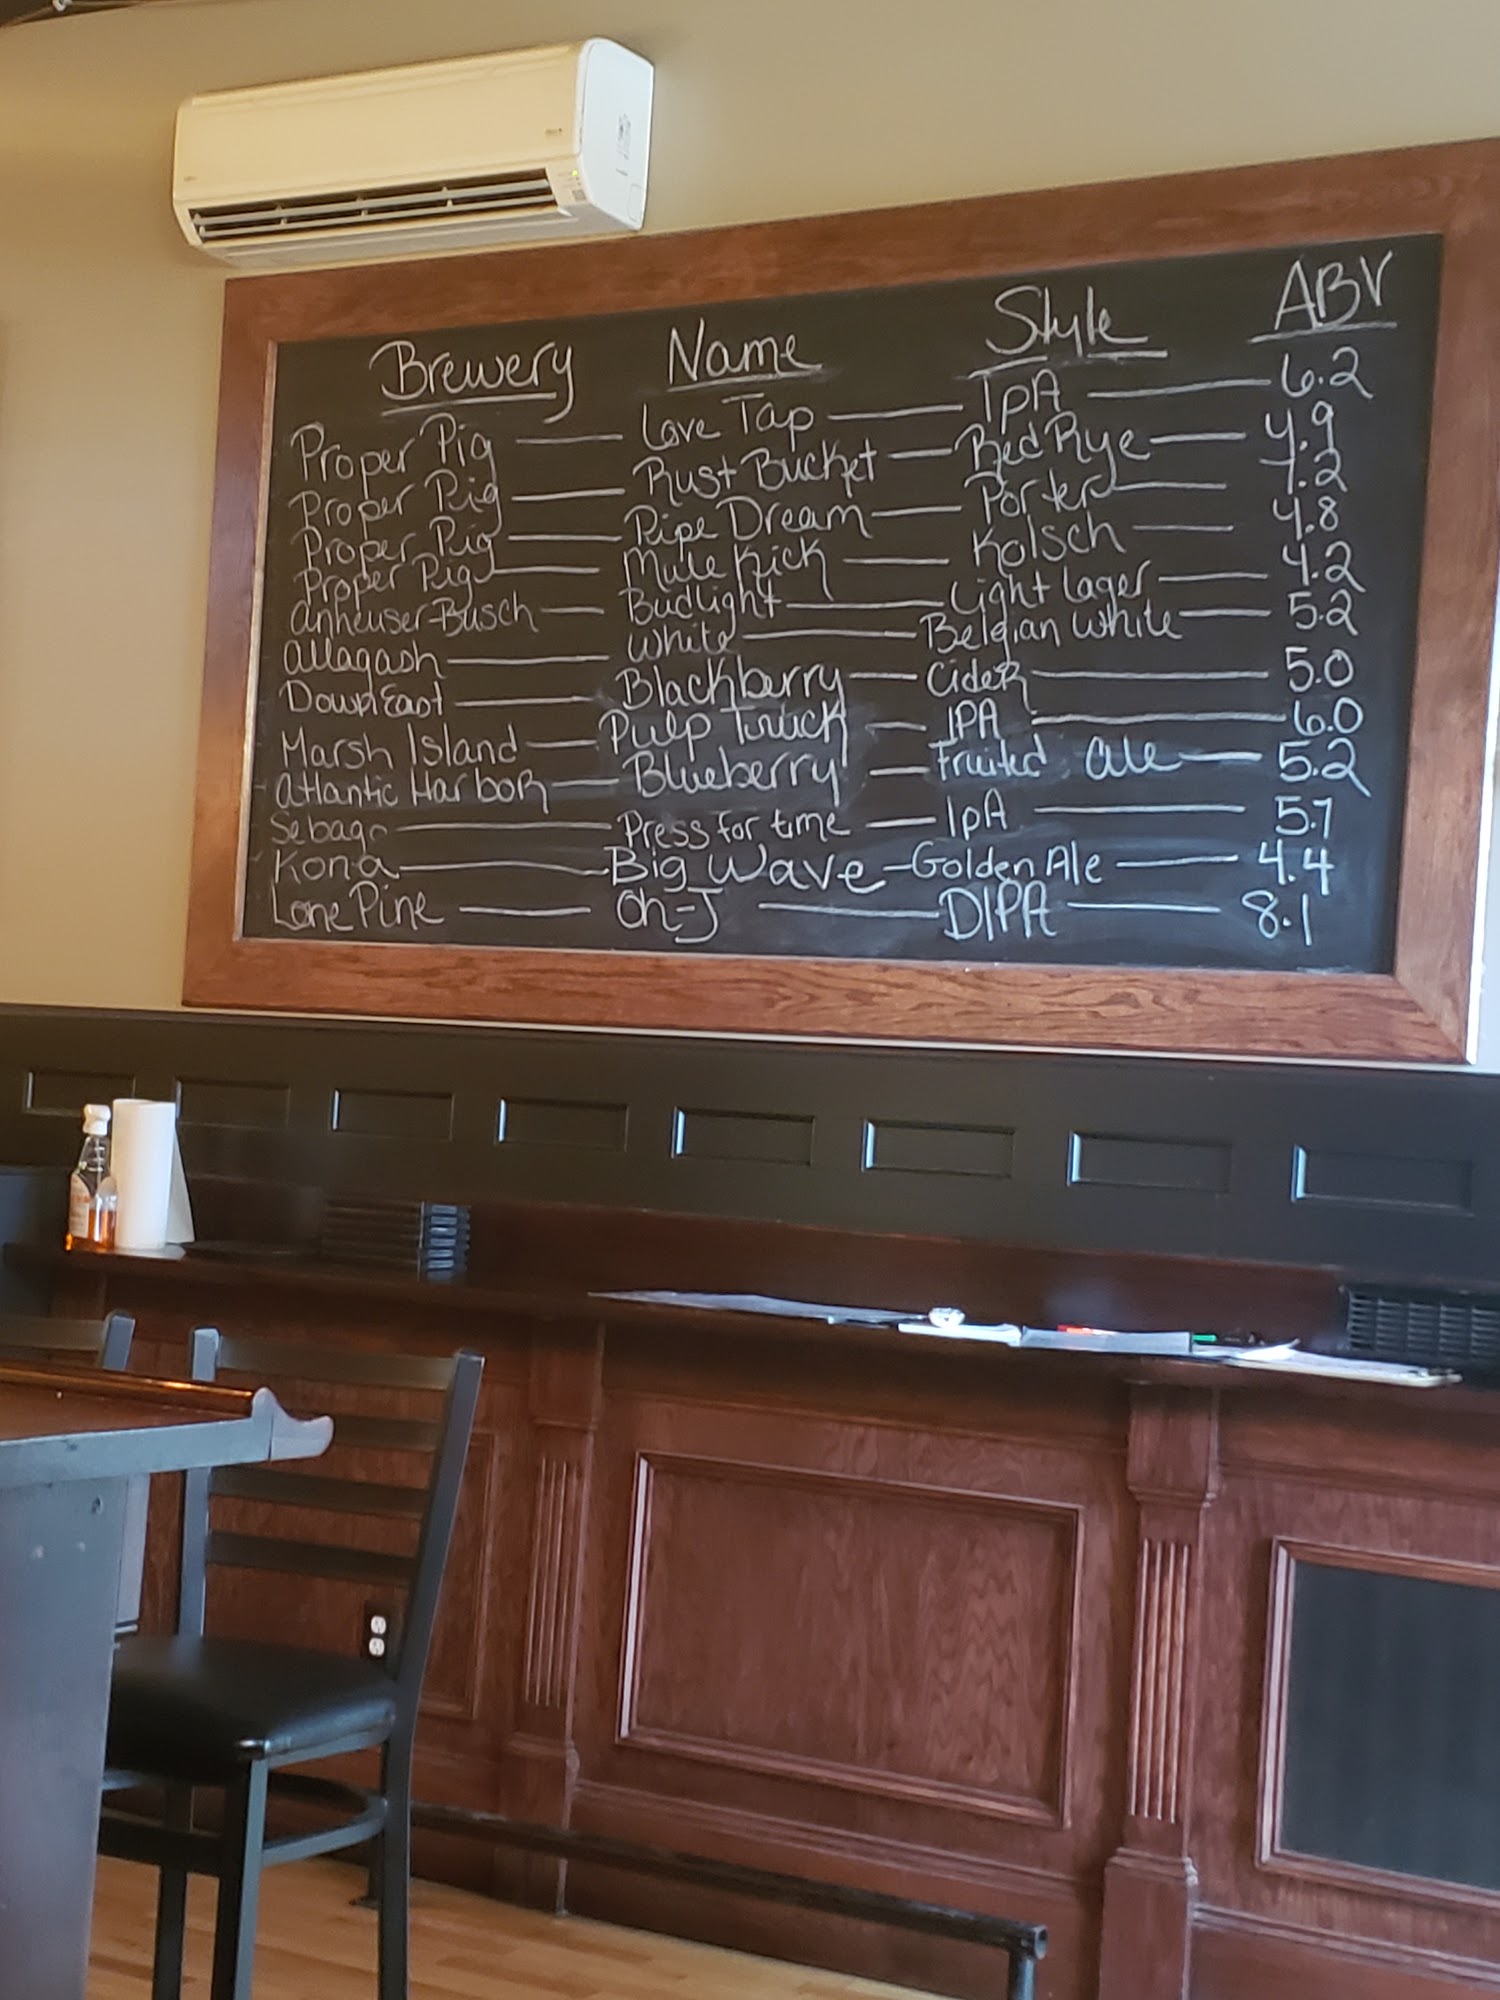 Brewery Name Style ABV
Proper Pig Love Tap IPA 6.2
Proper Pig Rust Bucket Red Rye 4.9
Proper Pig Pipe Dream Porter 7.2
Proper Pig Mule Kick Kolsch 4.8
Anheuser-Busch Budlight Light lager 4.2
allagash White Belgian White 5.2
DownEast Blackberry Cider 5.0
Marsh Island Pulp Truck IPA 6.0
Atlantic Harbor Blueberry Fruited ale 5.2
Sebago Press for time IpA 5.7
Kona Big Wave Golden Ale 4.4
Lone Pine Oh-J DIPA 8.1